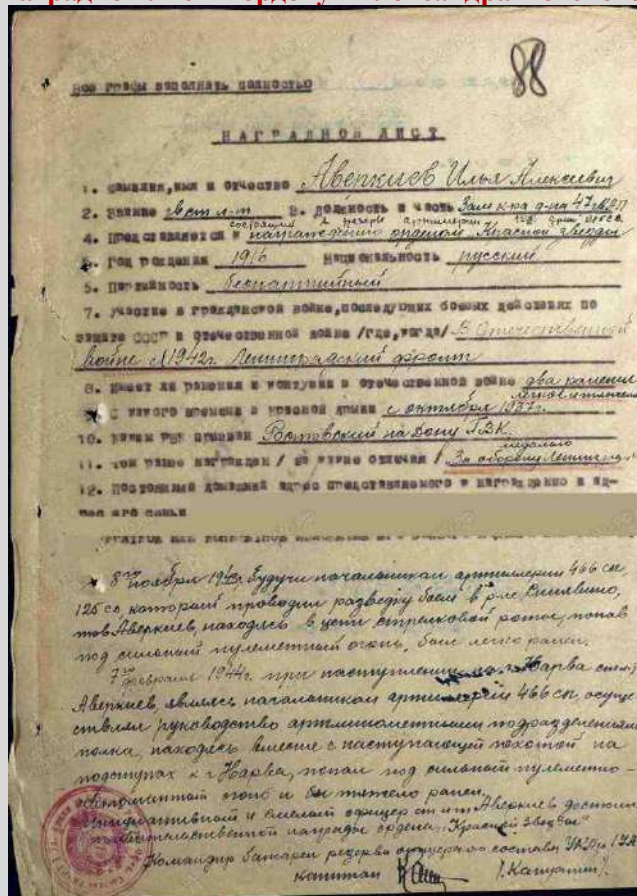 88
Все графы заполнять полностью
НАГРАДНОЙ ЛИСТ
1. Фамилия, имя и отчество Аверкиев Илья Алексеевич
2. Звание гв ст л-т 3. Должность и часть Зам к-ра д-на 47
состоящий в резерве артиллерии
4. Представляется к награждению орденом Красной звезды
5. Год рождения 1916 Национальность русский
5. Партийность беспартийный
7. Участие в гражданской войне, последующих боевых действиях по
защите СССР и отечественной войне /где, когда/ В Отечественной
войне с 1942г. Ленинградский фронт
8. Имеет ли ранения и контузии в отечественной войне два ранения
9. С какого времени в красной армии с октября 1937г.
10. Каким РВК призван Ростовский на Дону ГВК
медалью
11. Чем ранее награжден / за какие отличия / "За оборону Ленинграда"
12. Постоянный домашний адрес представляемого к награждению и ад-
рес его семьи
8го ноября 1943г, будучи начальником артиллерии 466 сп,
125 сд, который проводил разведку боем в р-не Синявино,
тов Аверкиев, находясь в цепи стрелковой роты, попав
под сильный пулеметный огонь, был легко ранен.
7го февраля 1944г при наступлении на г. Нарва
Аверкиев, являясь начальником артиллерии 466 сп, осуще
ствлял руководство артминометными подразделениями
полка, находясь вместе с наступающей пехотой на
подступах к г Нарва, попал под сильный пулеметно-
автоматный огонь и был тяжело ранен.
Инициативный и смелый офицер ст л-т Аверкиев достоин
правительственной награды ордена "Красной Звезды"
Командир батареи резерва офицерского состава
капитан